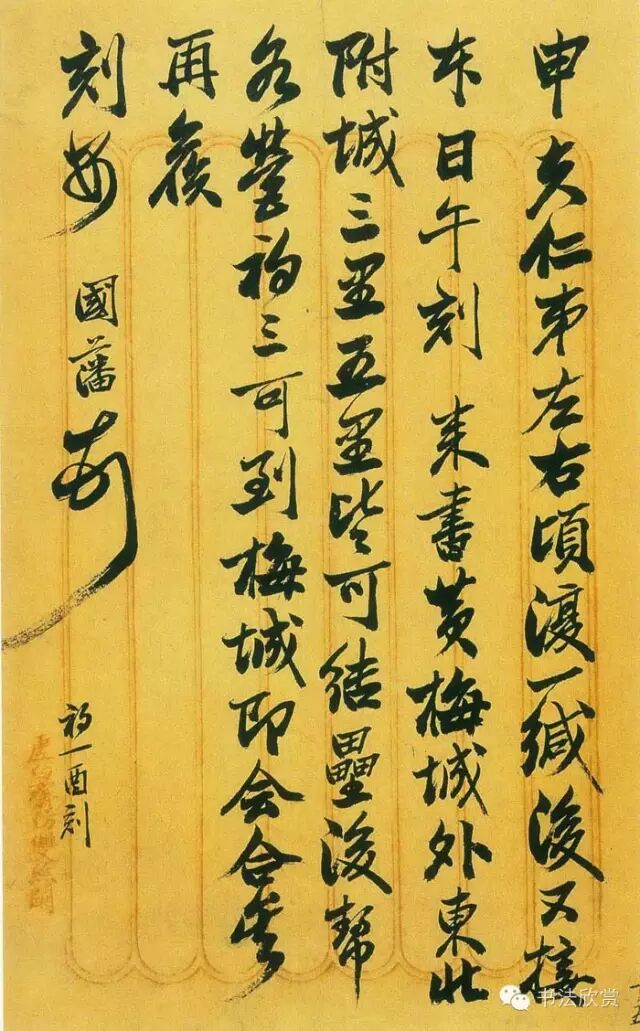 申夫仁弟左右頃覆一緘後又接
本日午刻 来書黄梅城外東北
附城三里五里皆可结壘後幫
各營初三可到梅城即会合矣
再候
刻安 國藩頓
初一酉刻
书法欣赏